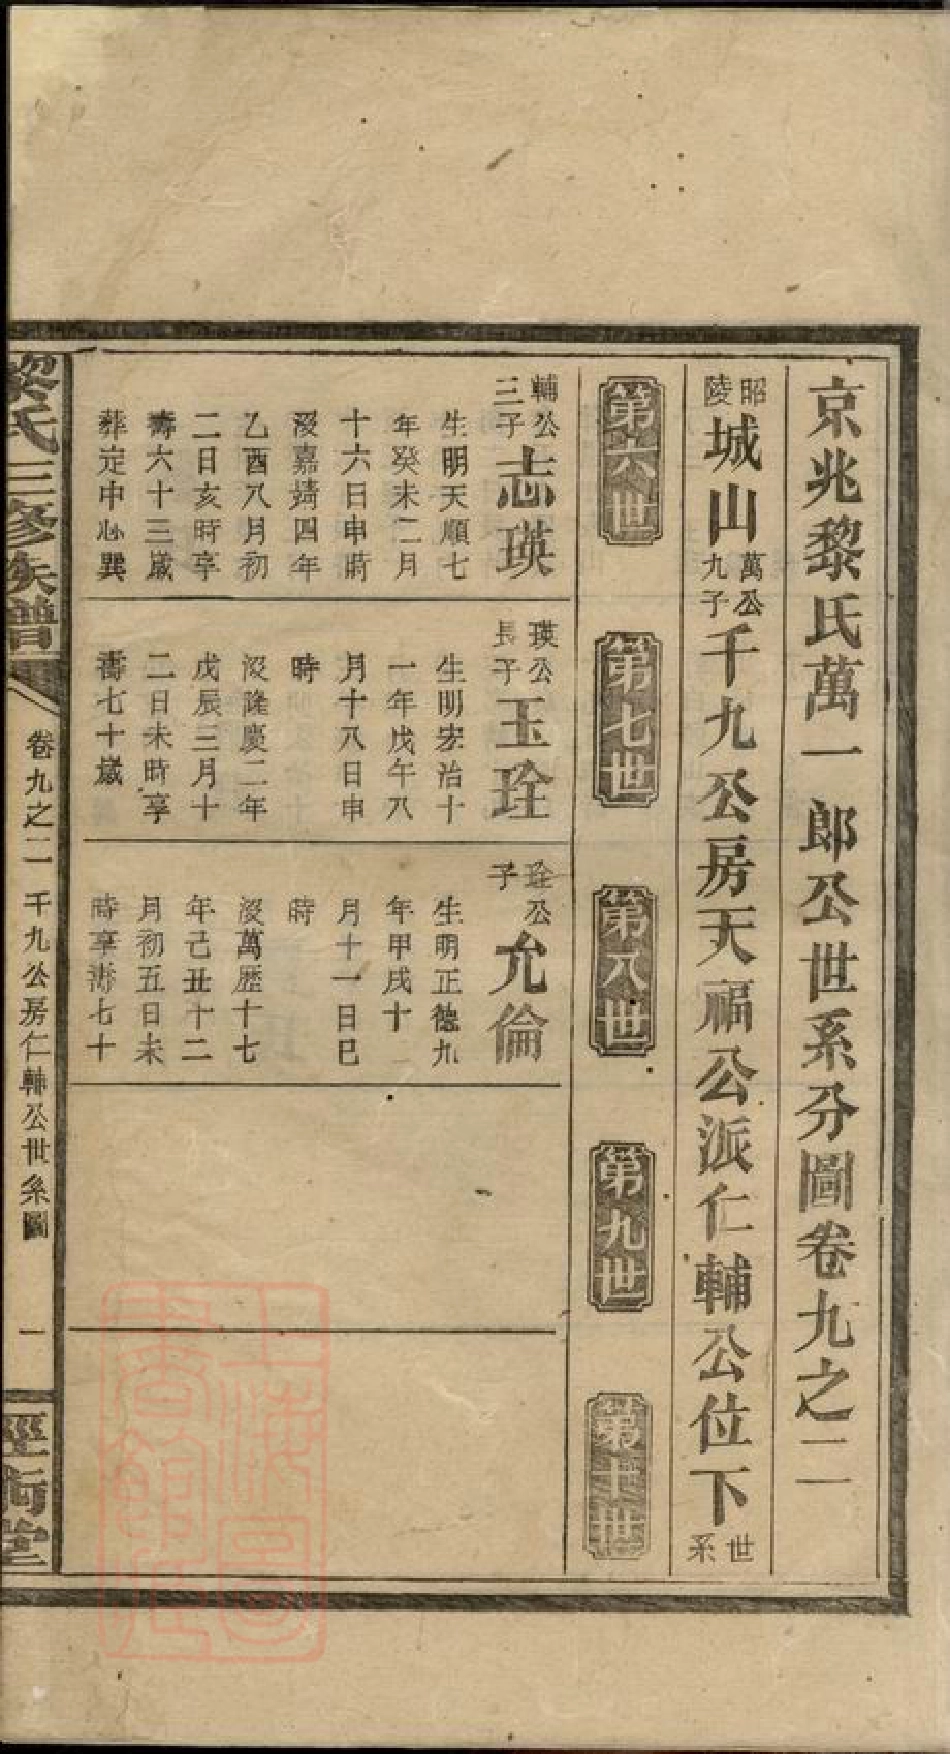 京兆黎氏萬一郎公世系分圖卷九之二
昭陵城山萬公九子千九公房天福公派仁輔公位下世系
第六世
第七世
第八世
第九世
第十世
輔公三子志瑛
生明天順七
年癸未二月
十六日申時
沒嘉靖四年
乙酉八月初
二日亥時享
壽六十三歲
葬定中心巽
瑛公長子玉琻
生明宏治十
一年戊午八
月十八日申
時
沒隆慶二年
戊辰三月十
二日未時享
壽七十歲
琻公子允倫
生明正德九
年甲戌十
月十一日巳
時
沒萬歷十七
年己丑十二
月初五日未
時享壽七十
黎氏三修族譜
卷九之二 千九公房仁輔公世系圖
一
經術堂
上海圖書館藏